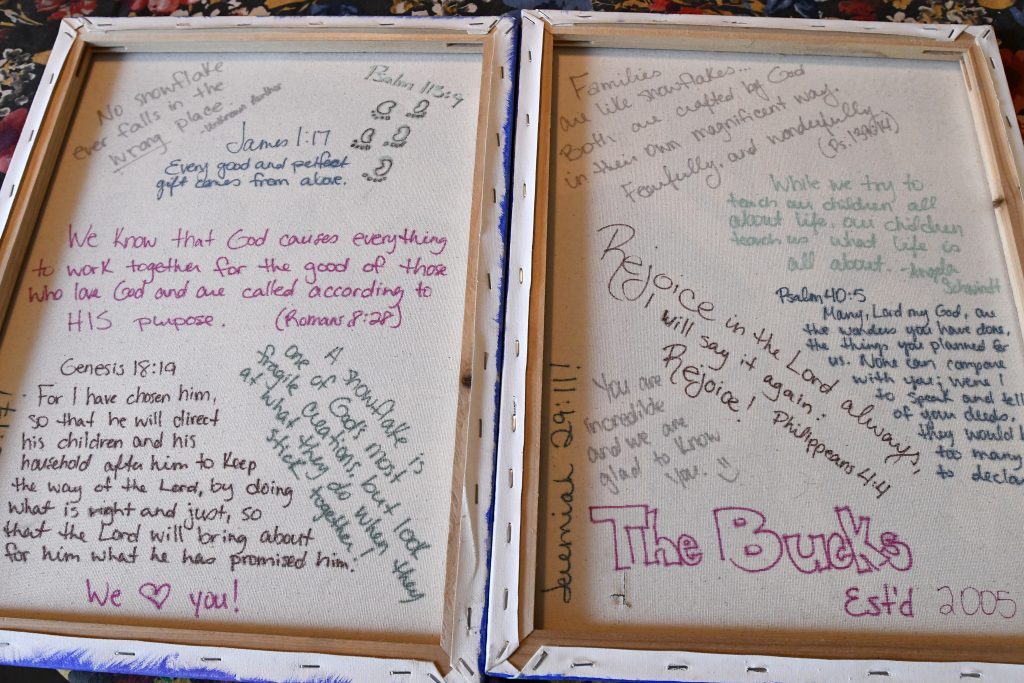 No snowflake
ever falls in the
wrong place
-Unknown Author
Psalm 113:9
James 1:17
Every good and perfect
gift comes from above.
We know that God causes everything
to work together for the good of those
who love God and are called according to
HIS purpose. (Romans 8:28)
Genesis 18:19
For I have chosen him,
so that he will direct
his children and his
household after him to keep
the way of the Lord, by doing
what is right and just, so
that the Lord will bring about
for him what he has promised him.
A snowflake is
one of God's most
fragile creations, but look
at what they do when they
stick together!
We ♡ you!
Families
are like snowflakes...
Both are crafted by God
in their own magnificent way.
Fearfully, and wonderfully
(Ps. 139:14)
While we try to
teach our children all
about life, our children
teach us what life is
all about. -Angela
Schwindt
Rejoice in the Lord always,
I will say it again:
Rejoice! Philippeans 4:4
Psalm 40:5
Many, Lord my God, are
the wonders you have done,
the things you planned for
us. None can compare
with you; were I
to speak and tell
of your deeds,
they would
too many
to decla
You are
incredible
and we are
glad to know
you. :)
Jeremiah 29:11!
The Bucks
Est'd 2005